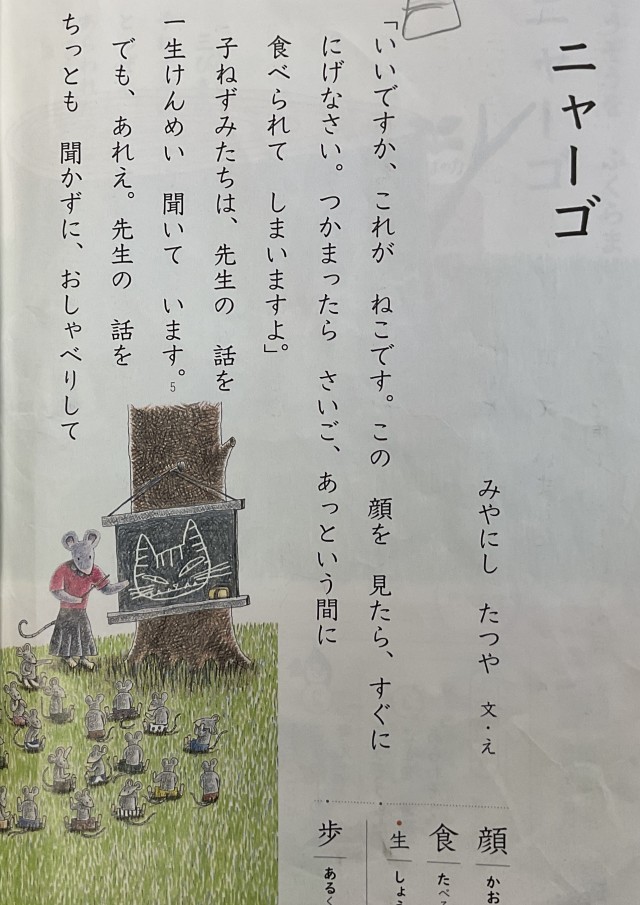 ニャーゴ
みやにし　たつや　文・え
「いいですか、これが　ねこです。この　顔を　見たら、すぐに
にげなさい。つかまったら　さいご、あっという間に
食べられて　しまいますよ」。
子ねずみたちは、先生の　話を
一生けんめい　聞いて　います。
5
でも、あれえ。先生の　話を
ちっとも　聞かずに、おしゃべりして
顔　かお
食　たべ
生　しょう
歩　あるく